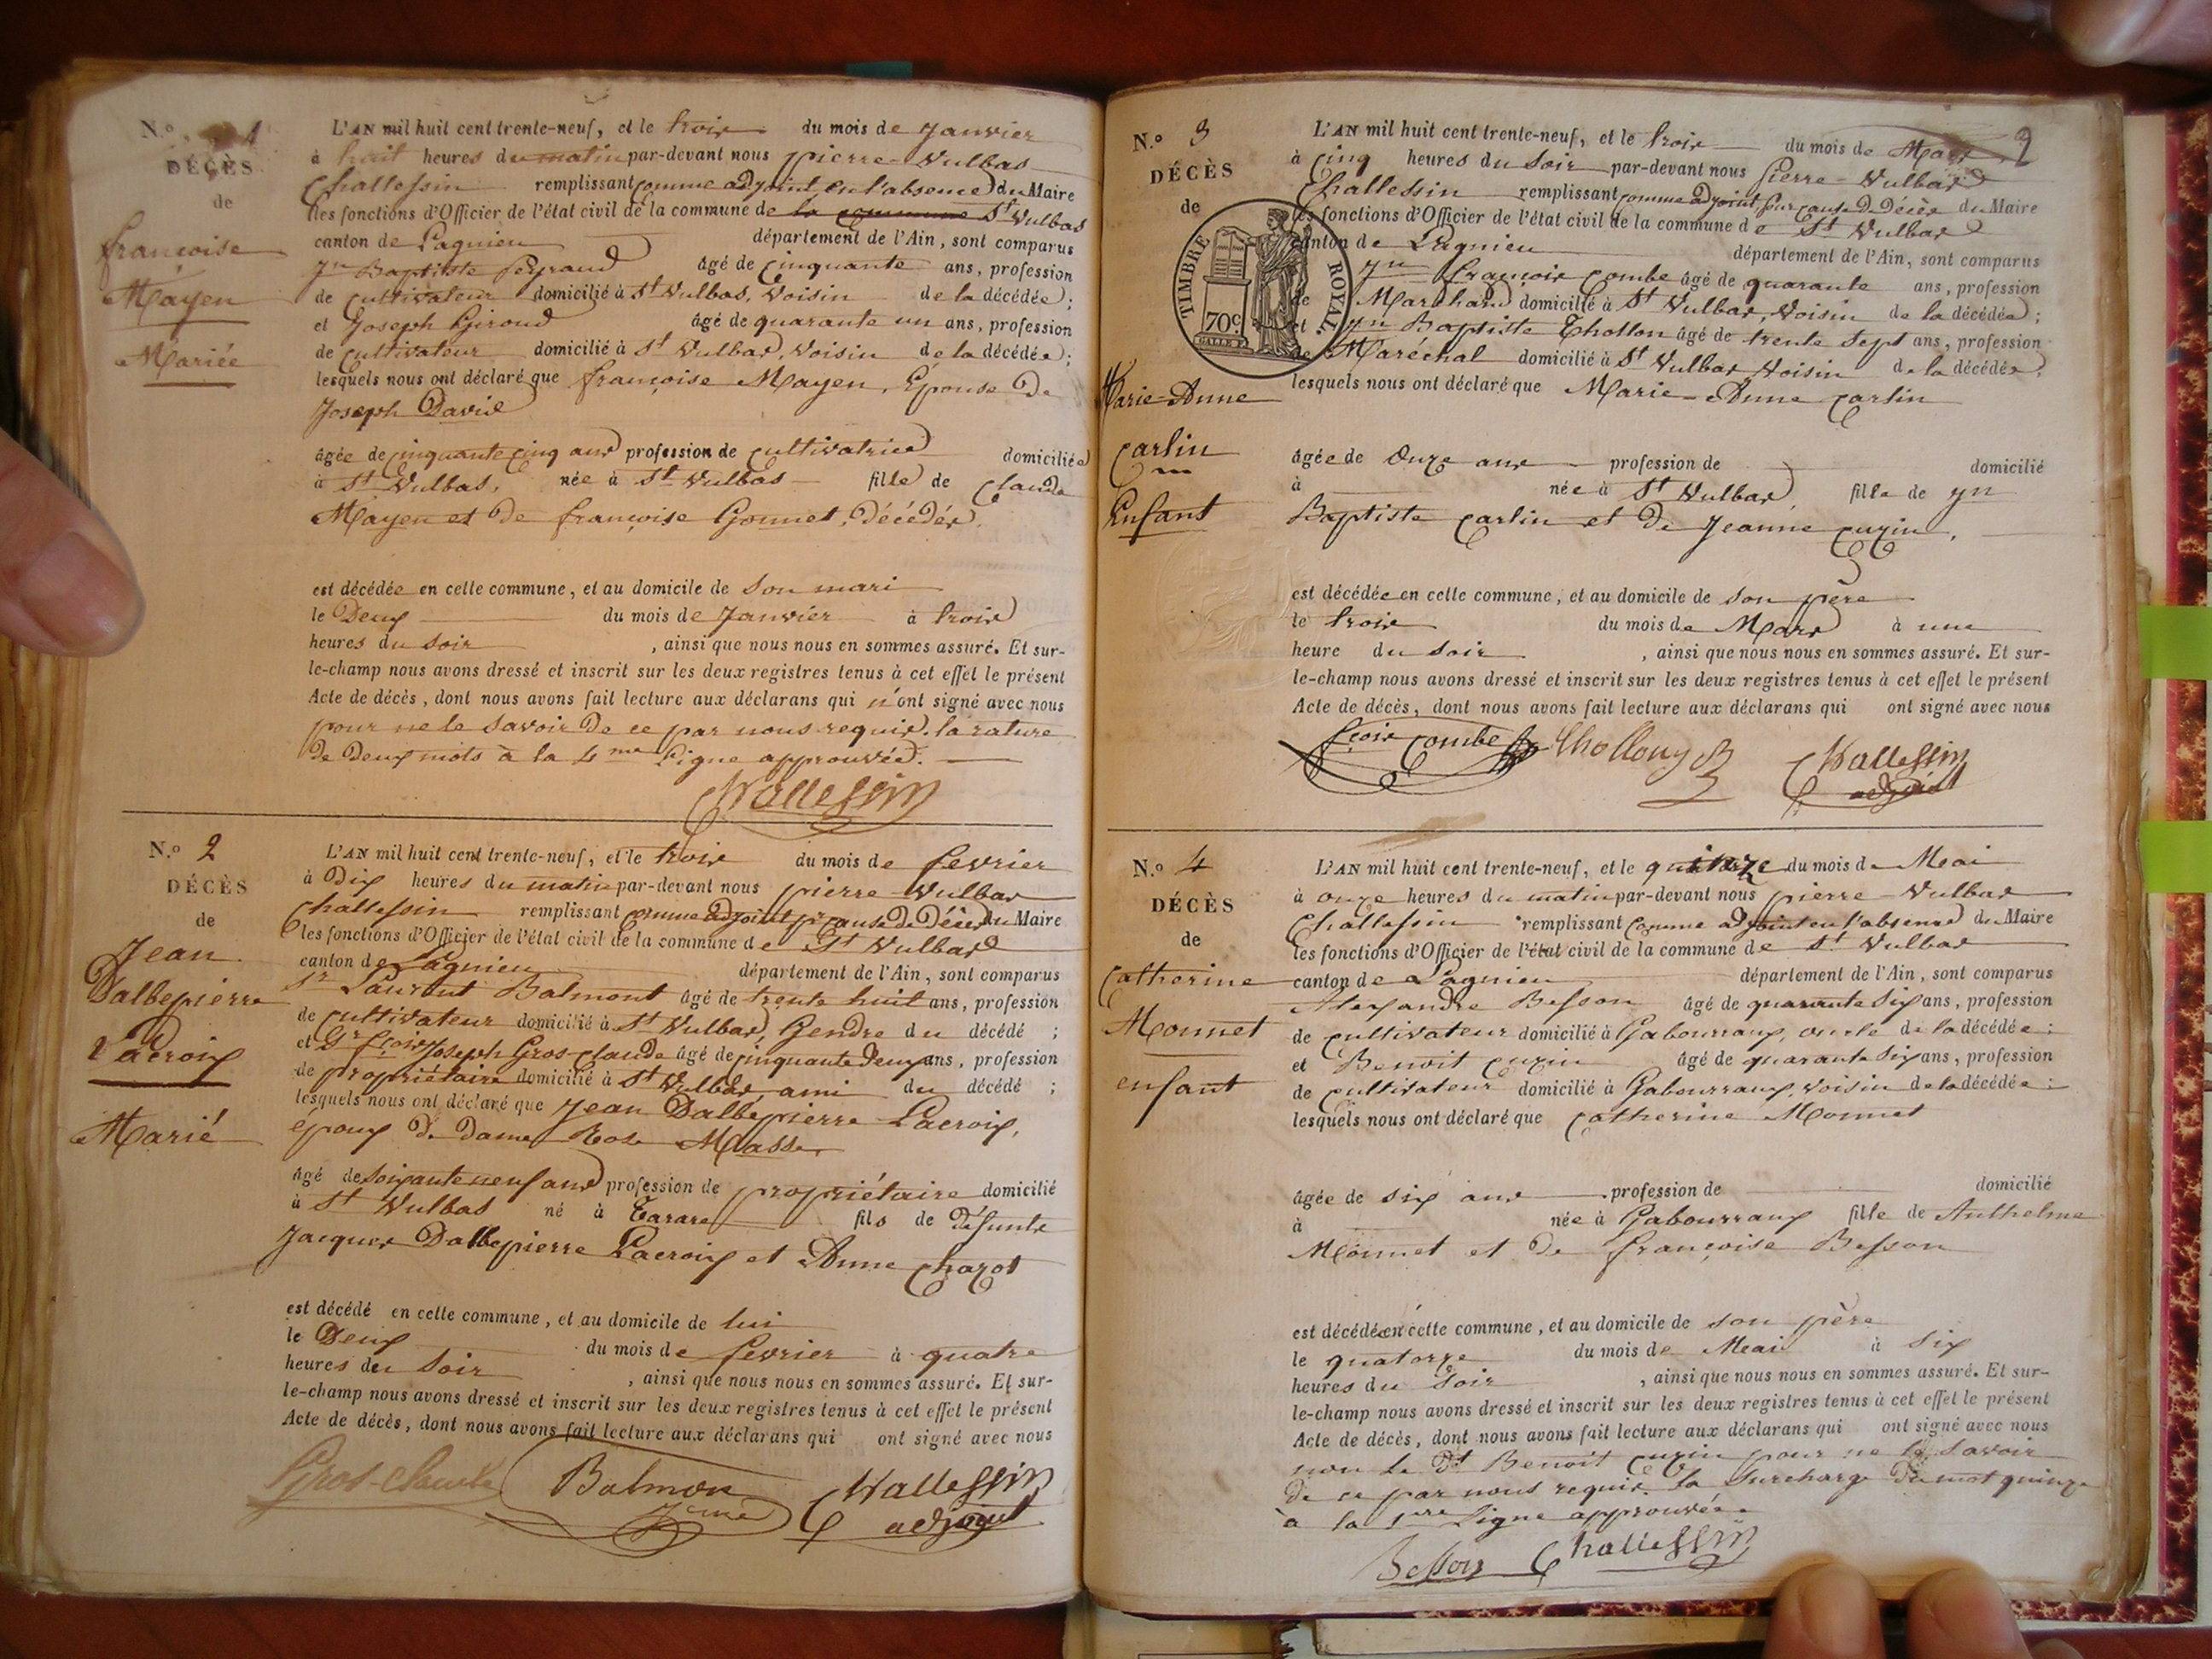 N.o 1
DÉCÈS
de
françoise
Mayen
Mariée
L'AN mil huit cent trente-neuf, et le trois du mois de Janvier
à huit heures du matin par-devant nous pierre-Vulbas
Challessin remplissant comme adjoint en l'absence du Maire
les fonctions d'Officier de l'état civil de la commune de la commune St Vulbas
canton de Lagnieu département de l'Ain, sont comparus
Jn Baptiste Peyraud âgé de cinquante ans, profession
de cultivateur domicilié à St Vulbas, Voisin de la décédée;
et Joseph Giroud âgé de quarante un ans, profession
de cultivateur domicilié à St Vulbas, Voisin de la décédée;
lesquels nous ont déclaré que françoise Mayen, Épouse de
Joseph David
âgée de cinquante cinq ans profession de cultivatrice domiciliée
à St Vulbas, née à St Vulbas fille de Claude
Mayen et de françoise Gonnet, décédés.
est décédée en cette commune, et au domicile de son mari
le Deux du mois de Janvier à trois
heures du soir , ainsi que nous nous en sommes assuré. Et sur-
le-champ nous avons dressé et inscrit sur les deux registres tenus à cet effet le présent
Acte de décès, dont nous avons fait lecture aux déclarans qui n'ont signé avec nous
pour ne le savoir de ce par nous requis. la rature
de deux mots à la 4me ligne approuvée.
Challessin
N.o 2
DÉCÈS
de
Jean
Dalbepierre
Lacroix
Marié
L'AN mil huit cent trente-neuf, et le trois du mois de fevrier
à Dix heures du matin par-devant nous pierre-Vulbas
Challessin remplissant comme adjoint pr cause de Décès du Maire
les fonctions d'Officier de l'état civil de la commune de St Vulbas
canton de Lagnieu département de l'Ain, sont comparus
Sr Laurent Balmont âgé de trente huit ans, profession
de cultivateur domicilié à St Vulbas, Gendre du décédé;
et Sr fçois Joseph Gros-claude âgé de cinquante deux ans, profession
de propriétaire domicilié à St Vulbas, ami du décédé;
lesquels nous ont déclaré que Jean Dalbepierre Lacroix,
époux de dame Rose Masse
âgé de soixante neuf ans profession de propriétaire domicilié
à St Vulbas né à Tarare fils de défunts
Jacques Dalbepierre Lacroix et Anne Chazot
est décédé en cette commune, et au domicile de lui
le Deux du mois de fevrier à quatre
heures du soir , ainsi que nous nous en sommes assuré. Et sur-
le-champ nous avons dressé et inscrit sur les deux registres tenus à cet effet le présent
Acte de décès, dont nous avons fait lecture aux déclarans qui ont signé avec nous
Gros-claude Balmon Challessin
adjoint
N.o 3
DÉCÈS
de
TIMBRE ROYAL
70c
Marie-Anne
Carlin
Enfant
2
L'AN mil huit cent trente-neuf, et le trois du mois de Mars
à cinq heures du soir par-devant nous Pierre-Vulbas
Challessin remplissant comme adjoint pour cause de Décès du Maire
les fonctions d'Officier de l'état civil de la commune de St Vulbas
canton de Lagnieu département de l'Ain, sont comparus
Jn françois Combe âgé de quarante ans, profession
de Marchand domicilié à St Vulbas, Voisin de la décédée;
et Jn Baptiste Thollon âgé de trente sept ans, profession
de Maréchal domicilié à St Vulbas Voisin de la décédée;
lesquels nous ont déclaré que Marie-Anne Carlin
âgée de Onze ans profession de domicilié
à née à St Vulbas, fille de Jn
Baptiste Carlin et de Jeanne Cuzin,
est décédée en cette commune, et au domicile de son père
le trois du mois de Mars à une
heure du soir , ainsi que nous nous en sommes assuré. Et sur-
le-champ nous avons dressé et inscrit sur les deux registres tenus à cet effet le présent
Acte de décès, dont nous avons fait lecture aux déclarans qui ont signé avec nous
fçois Combe Challessin
adjoint
N.o 4
DÉCÈS
de
Catherine
Monnet
enfant
L'AN mil huit cent trente-neuf, et le quinze du mois de Mai
à onze heures du matin par-devant nous pierre-Vulbas
Challessin remplissant comme adjoint en l'absence du Maire
les fonctions d'Officier de l'état civil de la commune de St Vulbas
canton de Lagnieu département de l'Ain, sont comparus
Alexandre Besson âgé de quarante six ans, profession
de cultivateur domicilié à Gabourraux, oncle de la décédée;
et Benoit Cuzin âgé de quarante six ans, profession
de cultivateur domicilié à Gabourraux, voisin de la décédée;
lesquels nous ont déclaré que Catherine Monnet
âgée de six ans profession de domicilié
à née à Gabourraux fille de Anthelme
Monnet et de françoise Besson
est décédée en cette commune, et au domicile de son père
le quatorze du mois de Mai à six
heures du soir , ainsi que nous nous en sommes assuré. Et sur-
le-champ nous avons dressé et inscrit sur les deux registres tenus à cet effet le présent
Acte de décès, dont nous avons fait lecture aux déclarans qui ont signé avec nous
non le dt Benoit Cuzin pour ne le savoir
de ce par nous requis. la surcharge du mot quinze
à la 1ere ligne approuvée.
Besson Challessin